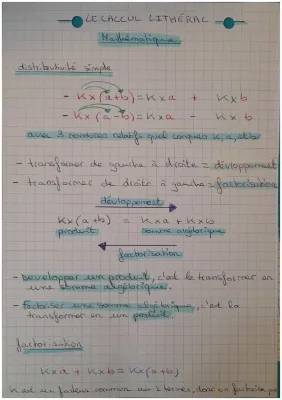 LE CALCUL LITHÉRAL
Mathématiques
distributivité simple
- K×(a+b)=K×a + K×b
- K×(a-b)=K×a - K×b
avec 3 nombres relatifs quelconques K, a, et b
- transformer de gauche à droite = dévloppement
- transformer de droite à gauche = factorisation
dévloppement
K×(a+b) = K×a + K×b
produit somme algébrique
factorisation
- Developper un produit, c'est le transformer en
une somme algébrique.
- factoriser une somme algébrique, c'est la
transformer en un produit.
factorisation
K×a + K×b = K×(a+b)
K est un facteur commun aux 2 termes, donc on factorise